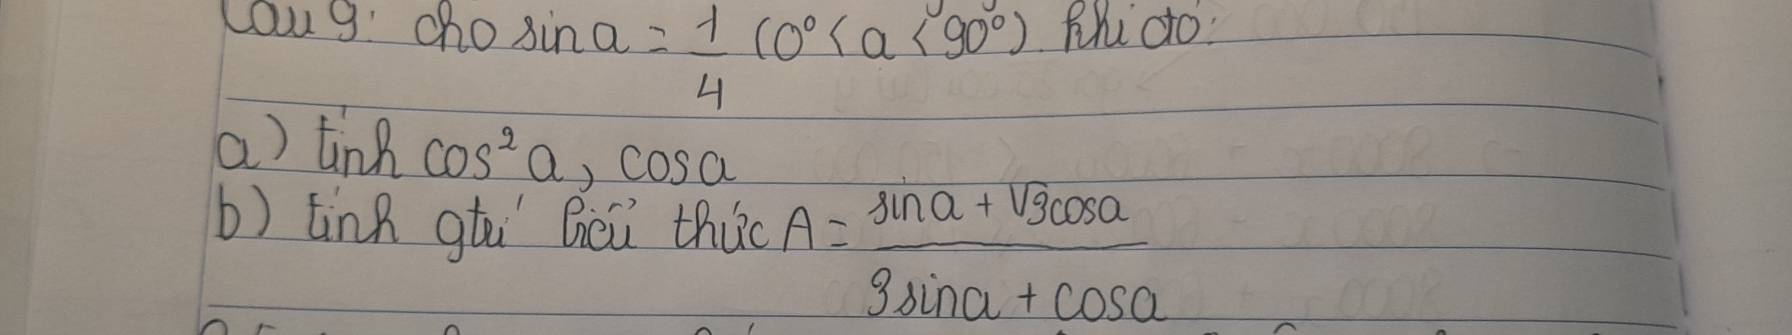 Câu 9: cho sin a = 1/4 (0° < a < 90°) khi đó:
a) tính cos² a, cosa
b) tính gtrị biểu thức A = (sina + √3cosa)/(3sina + cosa)